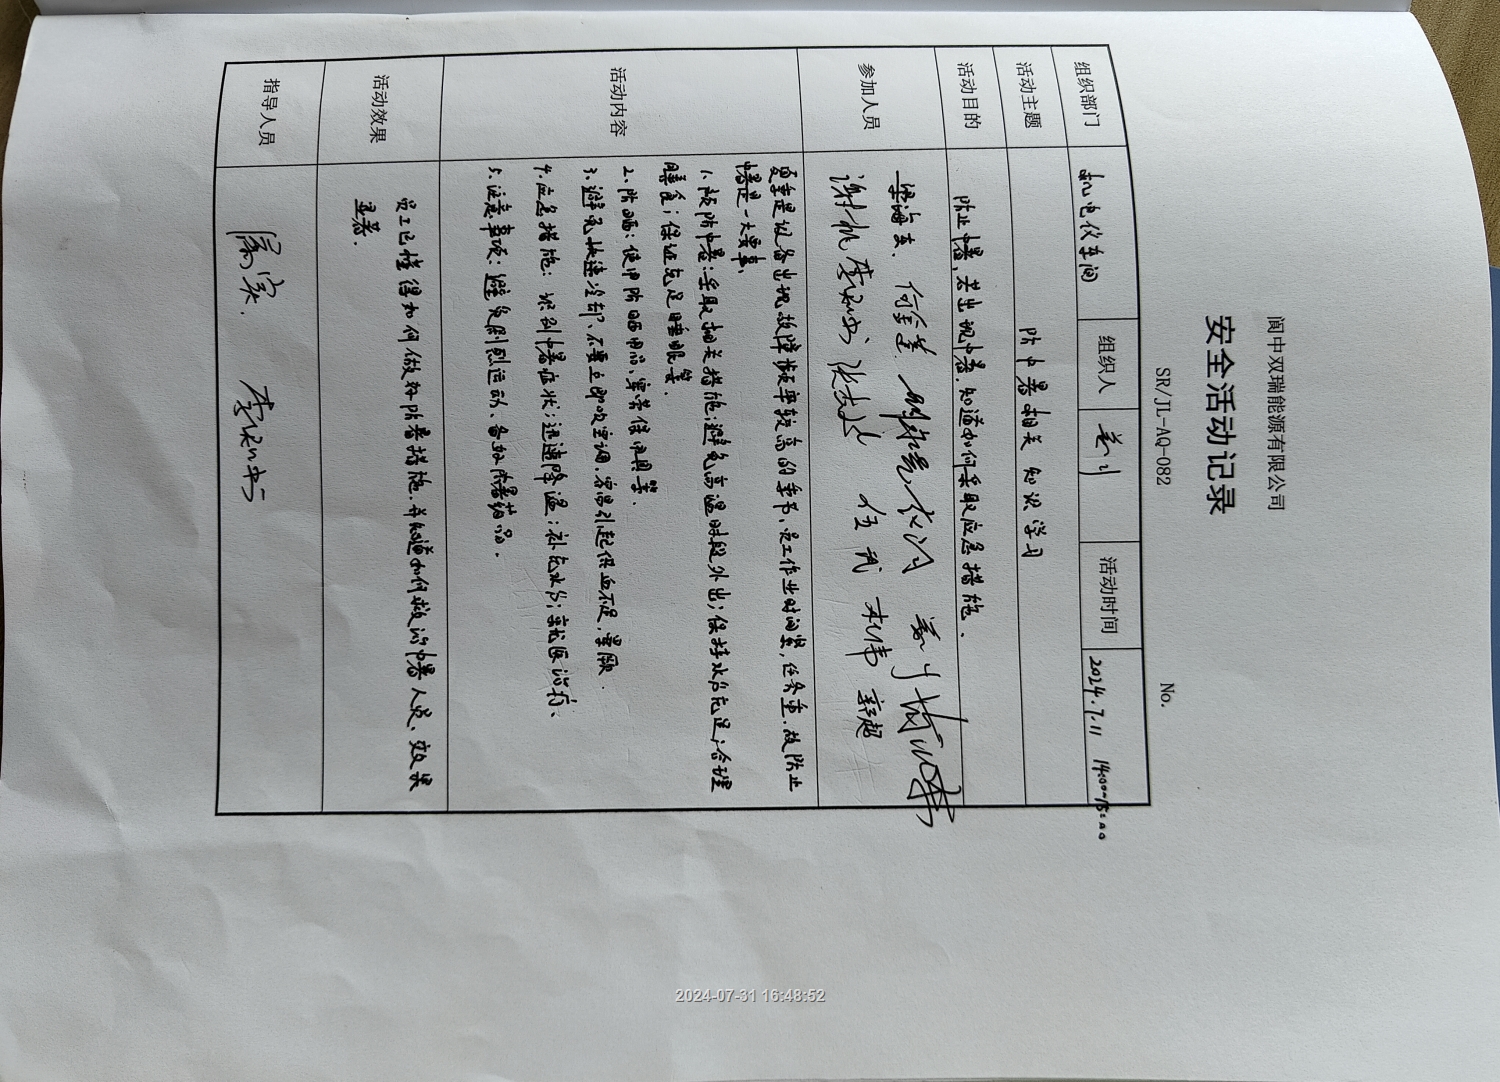 阆中双瑞能源有限公司
安全活动记录
SR/JL-AQ-082 No.
组织部门 机电仪车间 组织人 活动时间 2024.7.11 14:00-15:00
活动主题 防中暑相关知识学习
活动目的 防止中暑,若出现中暑.知道如何采取应急措施.
参加人员 梁海东.
任武 杜伟
活动内容 夏季是设备出现故障频率较高的季节、员工作业时间紧,任务重.故防止
中暑是一大要事.
1.预防中暑:采取相关措施;避免高温时段外出;保持水分充足;合理
膳食;保证充足睡眠等.
2、防晒:使用防晒用品、穿劳保用具等.
3、避免快速冷却、不要立即吹空调.容易引起供血不足,晕厥.
4.应急措施:识别中暑症状;迅速降温;补充水分;就地医治疗、
5.注意事项:避免剧烈运动、备好防暑药品.
活动效果 员工已懂得如何做好防暑措施.并知道如何救治中暑人员、效果
显著.
指导人员
2024-07-31 16:48:52